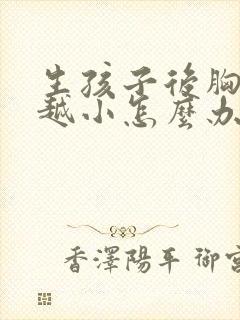 生孩子後胸
越小怎麼办
香澤陽平 御宮